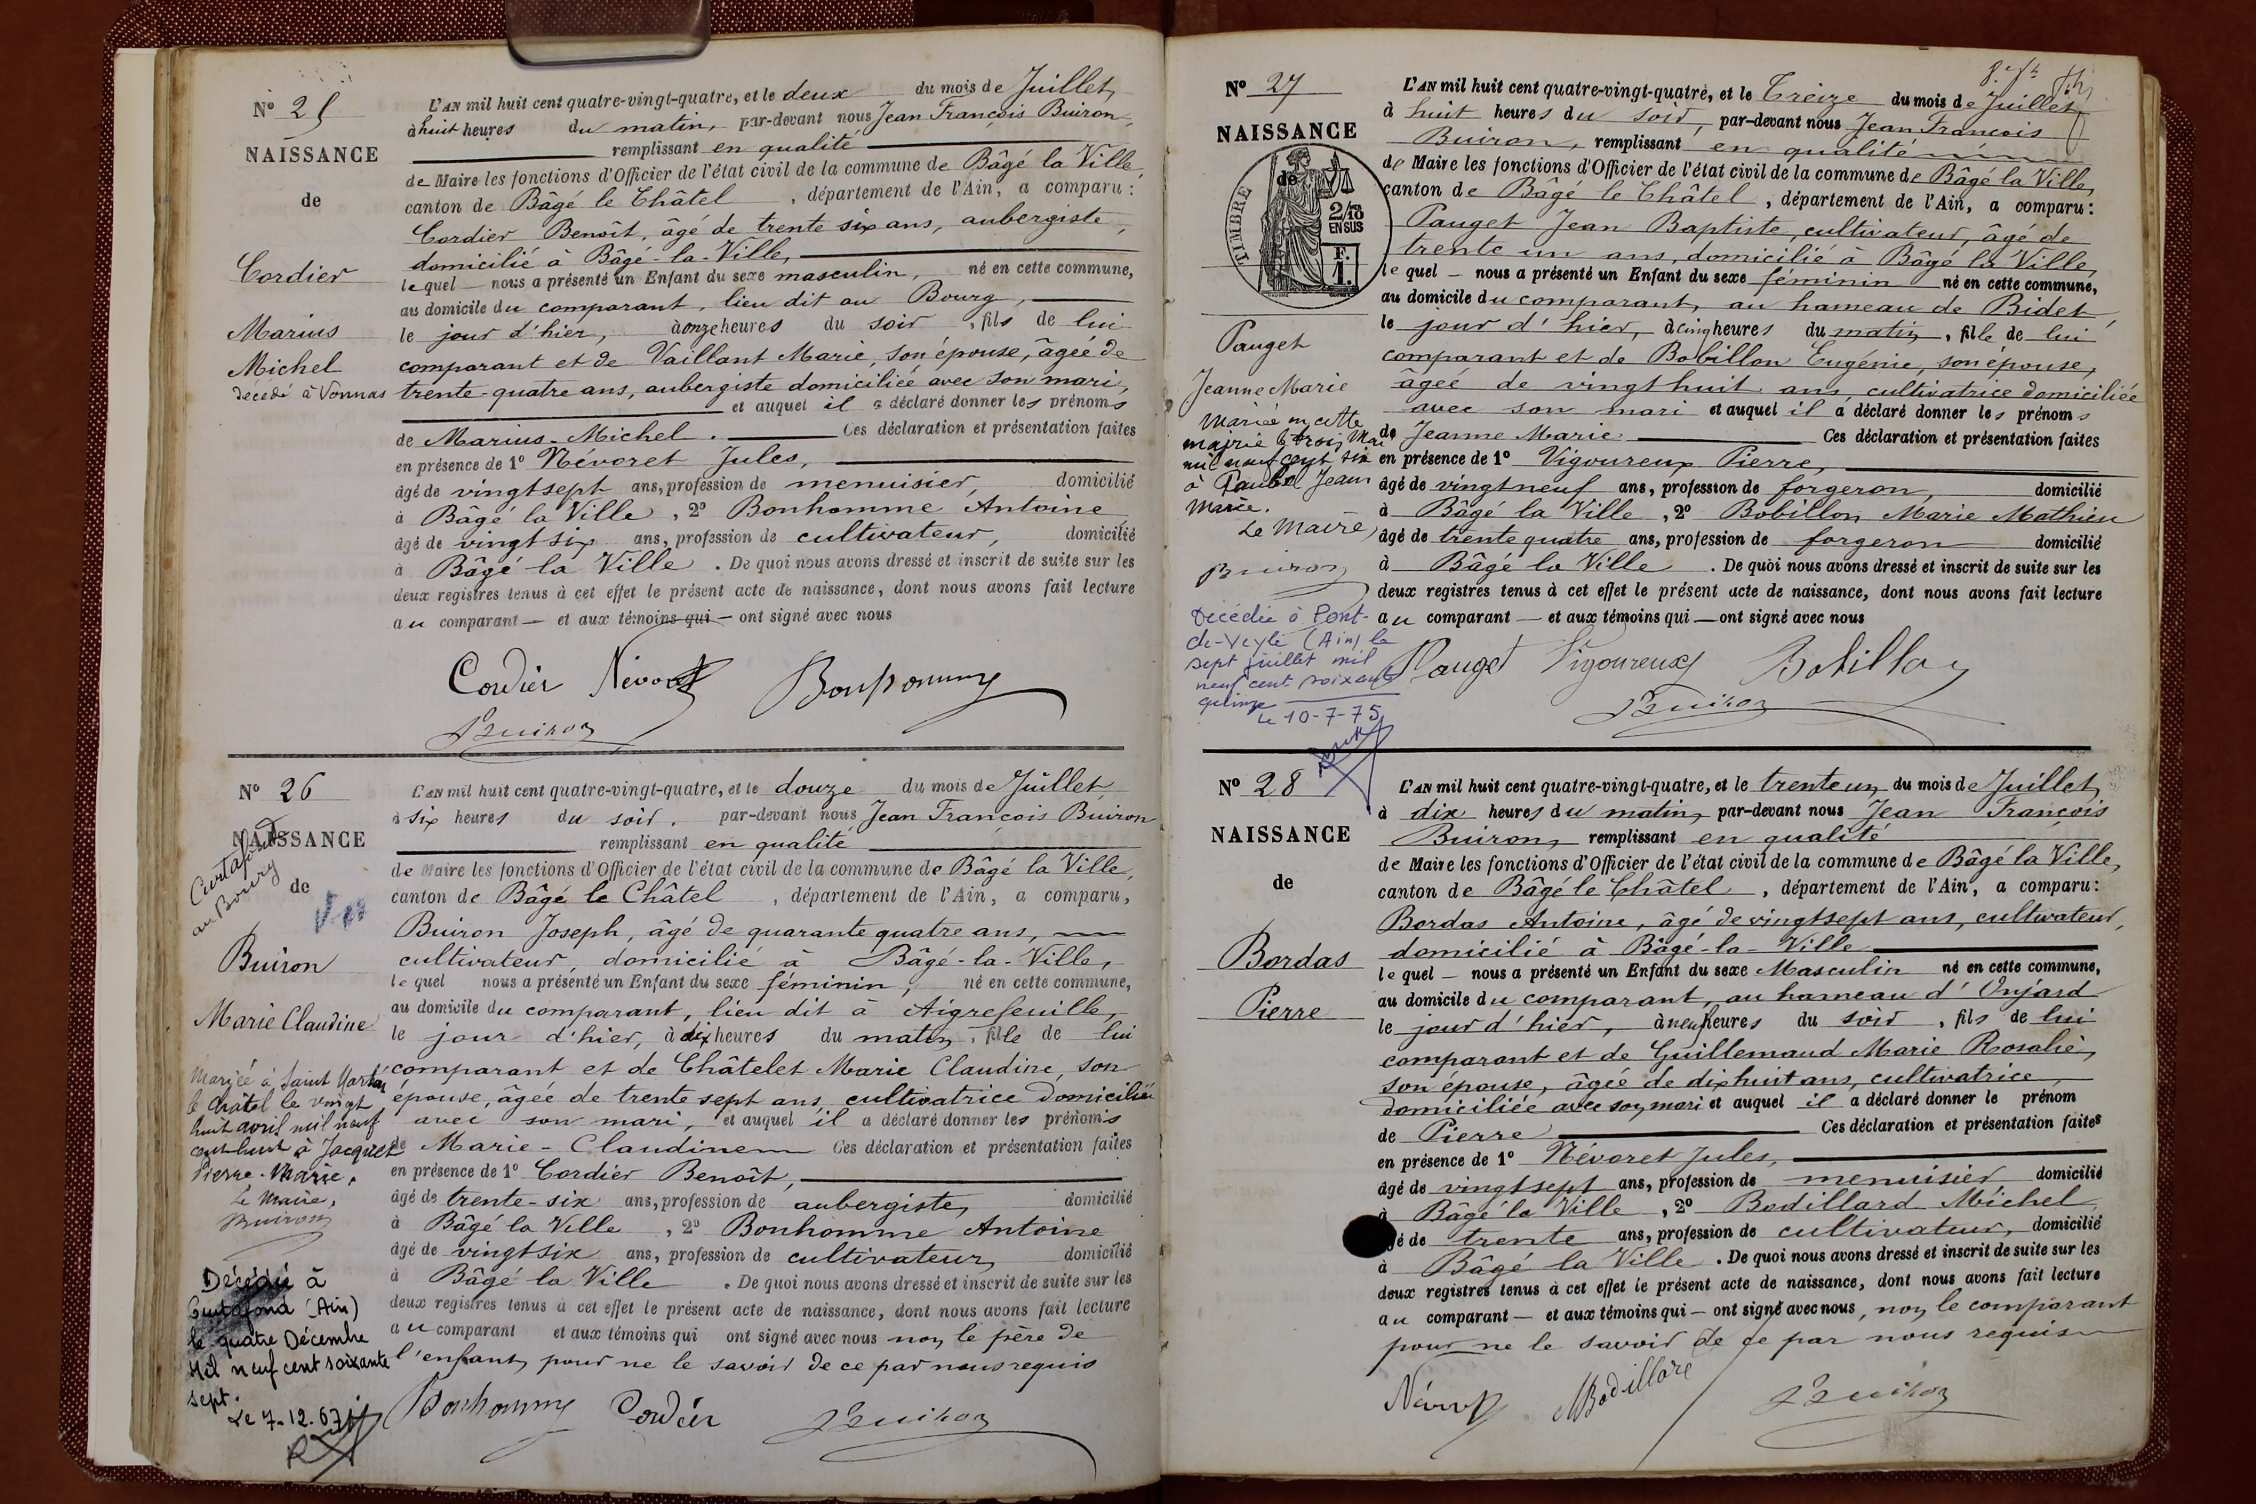 N° 25
NAISSANCE
de
Cordier
Marius
Michel
décédé à Vonnas
L'AN mil huit cent quatre-vingt-quatre, et le deux du mois de Juillet,
à huit heures du matin, par-devant nous Jean François Buiron,
remplissant en qualité
de Maire les fonctions d'Officier de l'état civil de la commune de Bâgé la Ville,
canton de Bâgé le Châtel, département de l'Ain, a comparu :
Cordier Benoît, âgé de trente six ans, aubergiste,
domicilié à Bâgé-la-Ville,
lequel nous a présenté un Enfant du sexe masculin, né en cette commune,
au domicile du comparant, lieu dit au Bourg,
le jour d'hier, à onze heures du soir, fils de lui
comparant et de Vaillant Marie, son épouse, âgée de
trente-quatre ans, aubergiste domiciliée avec son mari,
et auquel il a déclaré donner les prénoms
de Marius-Michel. Ces déclaration et présentation faites
en présence de 1° Névoret Jules,
âgé de vingt sept ans, profession de menuisier, domicilié
à Bâgé la Ville, 2° Bonhomme Antoine
âgé de vingt six ans, profession de cultivateur, domicilié
à Bâgé la Ville. De quoi nous avons dressé et inscrit de suite sur les
deux registres tenus à cet effet le présent acte de naissance, dont nous avons fait lecture
au comparant — et aux témoins qui — ont signé avec nous
Cordier Névoret Bonhomme
Buiron
N° 26
NAISSANCE
de
Curtafond
au Bourg
Buiron
Marie Claudine
Mariée à Saint Martin
le Châtel le vingt
huit avril mil neuf
cent huit à Jacquet
Pierre-Marie.
Le Maire,
Buiron
Décédée à
Curtafond (Ain)
le quatre Décembre
Mil neuf cent soixante
sept.
Le 7-12-67
L'AN mil huit cent quatre-vingt-quatre, et le douze du mois de Juillet,
à six heures du soir. par-devant nous Jean François Buiron
remplissant en qualité
de Maire les fonctions d'Officier de l'état civil de la commune de Bâgé la Ville,
canton de Bâgé le Châtel, département de l'Ain, a comparu,
Buiron Joseph, âgé de quarante quatre ans,
cultivateur, domicilié à Bâgé-la-Ville,
lequel nous a présenté un Enfant du sexe féminin, né en cette commune,
au domicile du comparant, lieu dit à Aigrefeuille,
le jour d'hier, à dix heures du matin, fille de lui
comparant et de Châtelet Marie Claudine, son
épouse, âgée de trente sept ans, cultivatrice domiciliée
avec son mari, et auquel il a déclaré donner les prénoms
de Marie-Claudine Ces déclaration et présentation faites
en présence de 1° Cordier Benoît,
âgé de trente-six ans, profession de aubergiste, domicilié
à Bâgé la Ville, 2° Bonhomme Antoine
âgé de vingt six ans, profession de cultivateur, domicilié
à Bâgé la Ville. De quoi nous avons dressé et inscrit de suite sur les
deux registres tenus à cet effet le présent acte de naissance, dont nous avons fait lecture
au comparant et aux témoins qui ont signé avec nous non le père de
l'enfant, pour ne le savoir de ce par nous requis
Bonhomme Cordier Buiron
N° 27
NAISSANCE
de
TIMBRE
2/10
EN SUS
F.
1.
Pauget
Jeanne Marie
Mariée en cette
mairie le trois Mai
mil neuf cent six
à Paubel Jean
Marie.
Le Maire,
Buiron
Décédée à Pont-
de-Veyle (Ain) le
sept juillet mil
neuf cent soixante
quinze
Le 10-7-75
L'AN mil huit cent quatre-vingt-quatre, et le Treize du mois de Juillet
à huit heures du soir, par-devant nous Jean François
Buiron, remplissant en qualité
de Maire les fonctions d'Officier de l'état civil de la commune de Bâgé la Ville,
canton de Bâgé le Châtel, département de l'Ain, a comparu :
Pauget Jean Baptiste, cultivateur, âgé de
trente un ans, domicilié à Bâgé la Ville,
lequel — nous a présenté un Enfant du sexe féminin né en cette commune,
au domicile du comparant, au hameau de Bidet,
le jour d'hier, à cinq heures du matin, fille de lui
comparant et de Bobillon Eugénie, son epouse,
âgée de vingt huit ans, cultivatrice domiciliée
avec son mari et auquel il a déclaré donner les prénoms
de Jeanne Marie Ces déclaration et présentation faites
en présence de 1° Vigoureux Pierre,
âgé de vingt neuf ans, profession de forgeron, domicilié
à Bâgé la Ville, 2° Bobillon Marie Mathieu
âgé de trente quatre ans, profession de forgeron domicilié
à Bâgé la Ville. De quoi nous avons dressé et inscrit de suite sur les
deux registres tenus à cet effet le présent acte de naissance, dont nous avons fait lecture
au comparant — et aux témoins qui — ont signé avec nous
Pauget Vigoureux Bobillon
Buiron
N° 28
NAISSANCE
de
Bordas
Pierre
L'AN mil huit cent quatre-vingt-quatre, et le trente un du mois de Juillet,
à dix heures du matin, par-devant nous Jean François
Buiron, remplissant en qualité
de Maire les fonctions d'Officier de l'état civil de la commune de Bâgé la Ville,
canton de Bâgé le Châtel, département de l'Ain, a comparu :
Bordas Antoine, âgé de vingt sept ans, cultivateur,
domicilié à Bâgé-la-Ville
lequel — nous a présenté un Enfant du sexe Masculin né en cette commune,
au domicile du comparant, au hameau d'Onjard
le jour d'hier, à neuf heures du soir, fils de lui
comparant et de Guillemaud Marie Rosalie,
son épouse, âgée de dix huit ans, cultivatrice,
domiciliée avec son mari et auquel il a déclaré donner le prénom
de Pierre Ces déclaration et présentation faites
en présence de 1° Névoret Jules,
âgé de vingt sept ans, profession de menuisier domicilié
à Bâgé la Ville, 2° Bodillard Michel
âgé de trente ans, profession de cultivateur, domicilié
à Bâgé la Ville. De quoi nous avons dressé et inscrit de suite sur les
deux registres tenus à cet effet le présent acte de naissance, dont nous avons fait lecture
au comparant — et aux témoins qui — ont signé avec nous, non le comparant
pour ne le savoir de ce par nous requis
Névoret MBodillard Buiron